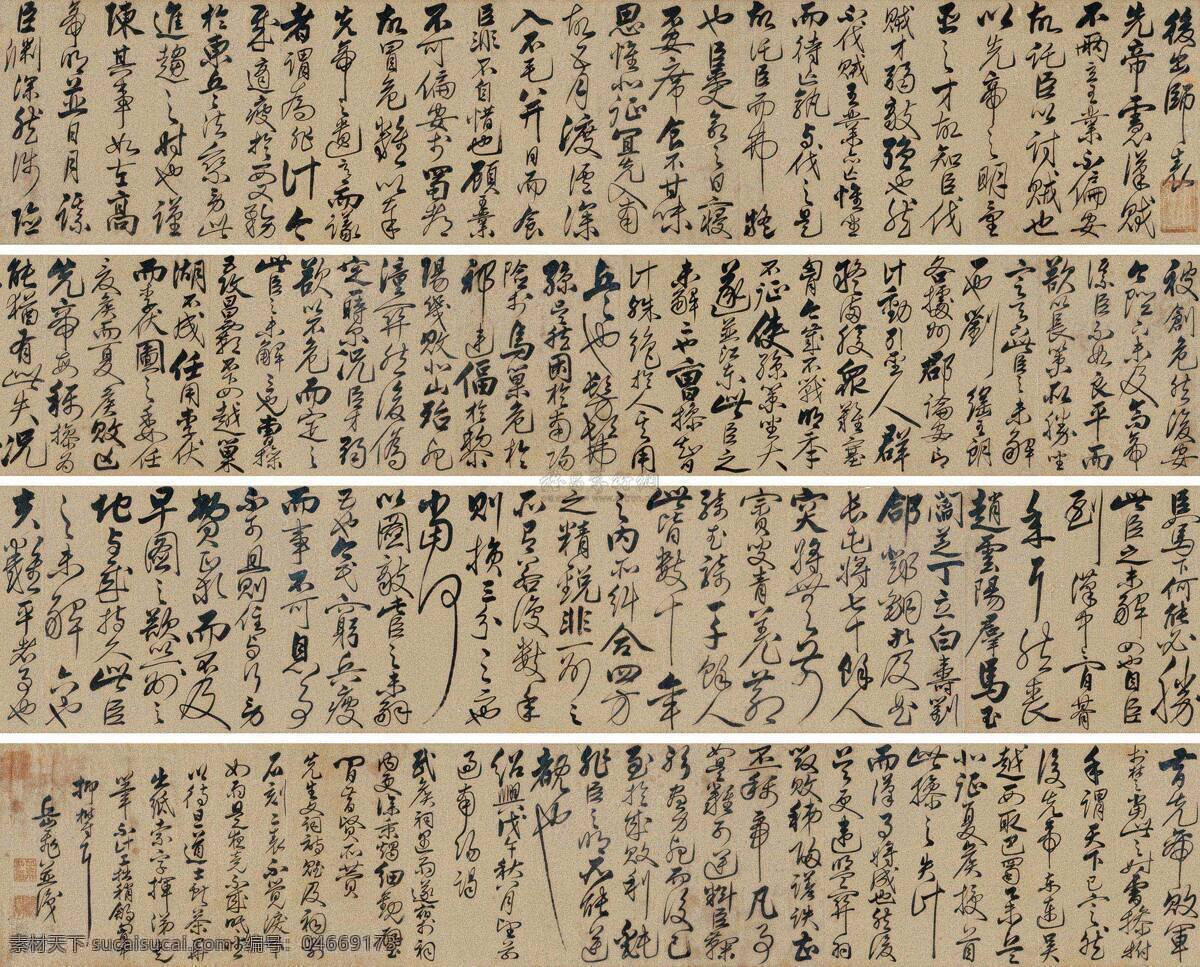 後出師表
先帝慮漢賊
不兩立王業不偏安
故託臣以討賊也
以先帝之明量
臣之才故知臣伐
賊才弱敵強也然
不伐賊王業亦亡惟坐
而待亡孰與伐之是
故託臣而弗疑
也臣受命之日寢
不安席食不甘味
思惟北征宜先入南
故五月渡瀘深
入不毛并日而食
臣非不自惜也顧王業
不可偏安於蜀都
故冒危難以奉
先帝之遺意而議
者謂為非計今
賊適疲於西又務
於東兵法乘勞此
進趨之時也謹
陳其事如左高
帝明並日月謀
臣淵深然涉險
被創危然後安
今陛下未及高帝
謀臣不如良平而
欲以長策取勝坐
定天下此臣之未解
一也劉繇王朗
各據州郡論安言
計動引聖人群
疑滿腹眾難塞
胸今歲不戰明年
不征使孫策坐大
遂並江東此臣之
未解二也曹操智
計殊絕於人其用
兵也髣髴
孫吳然困於南陽
險於烏巢危於
祁連偪於黎
陽幾敗北山殆死
潼關然後偽
定一時爾況臣才弱
欲以不危而定之
此臣之未解三也曹操
五攻昌霸不下四越巢
湖不成任用李伏
而李伏圖之委任
夏侯而夏侯敗亡
先帝每稱操為
能猶有此失況
臣駑下何能必勝
此臣之未解四也自臣
到漢中中間期
年耳然喪
趙雲陽群馬玉
閻芝丁立白壽劉
郃鄧銅等及曲
長屯將七十餘人
突將無前
賨叟青羌散
騎武騎一千餘人
此皆數十年
之內所糾合四方
之精銳非一州之
所有若復數年
則損三分之二也
當何
以圖敵此臣之未解
五也今民窮兵疲
而事不可息事
不可息則住與行勞
費正等而不及
早圖之欲以一州之
地與賊持久此臣
之未解六也
夫難平者事也
昔先帝敗軍
於楚當此之時曹操拊
手謂天下已定然
後先帝東連吳
越西取巴蜀舉兵
北征夏侯授首
此操之失計
而漢事將成也然後
吳更違盟關羽
毀敗秭歸蹉跌曹
丕稱帝凡事
如是難可逆料臣鞠
躬盡力死而後已
至於成敗利鈍
非臣之明所能逆
覩也
紹興戊午秋八月望前
過南陽謁
武侯祠遇雨遂宿於祠
內更深秉燭細觀壁
間昔賢所贊
先生文詞詩賦及祠前
石刻二表不覺淚下
如雨是夜竟不成眠坐
以待旦道士獻茶畢
出紙索字揮涕走
筆不計工拙稍舒胸中
抑鬱耳
岳飛並識
素材天下 sucaisucai.com 编号：04669175